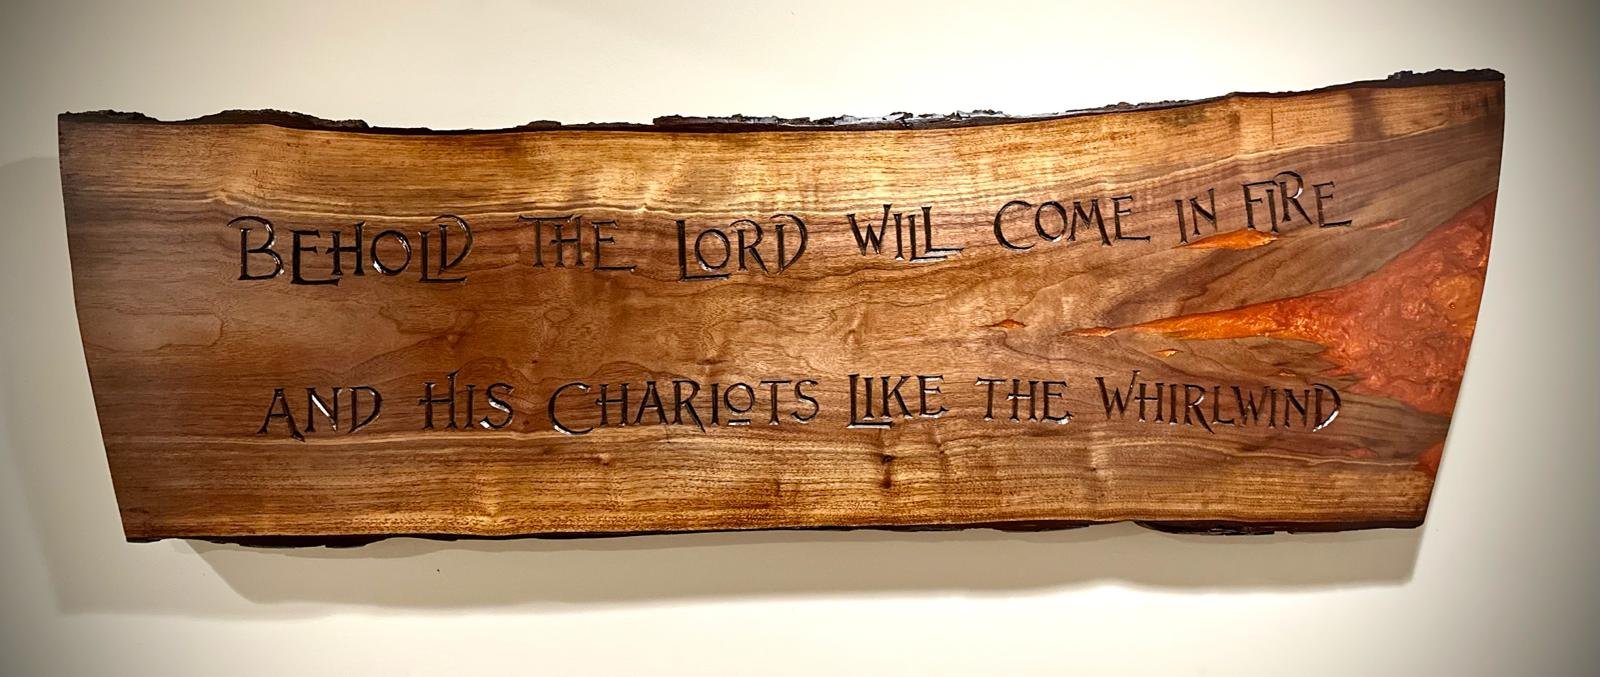 Behold the Lord will come in fire
and His Chariots like the whirlwind